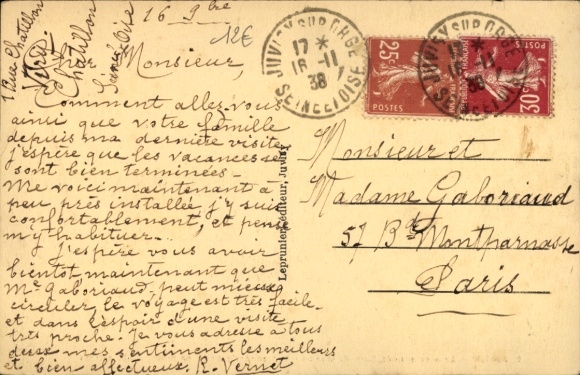 16 9bre
12€
Cher Monsieur,
Comment allez-vous
ainsi que votre famille
depuis ma dernière visite
j'espère que les vacances se
sont bien terminées -
Me voici maintenant à
peu près installée j'y suis
confortablement, et pense
m'y habituer.
J'espère vous avoir
bientôt maintenant que
Mr Gaboriaud, peut mieux
circuler, le voyage est très facile
et dans l'espoir d'une visite
très proche. Je vous adresse à tous
deux mes sentiments les meilleurs
et bien affectueux. R. Vernet
Châtillon
Seine Oise
Leprunier, éditeur, Juvisy
JUVISY SUR ORGE
17 *
16 - 11
38
SEINE ET OISE
25c
POSTES
JUVISY SUR ORGE
38
30c
POSTES
Monsieur et
Madame Gaboriaud
57 Bd Montparnasse
Paris